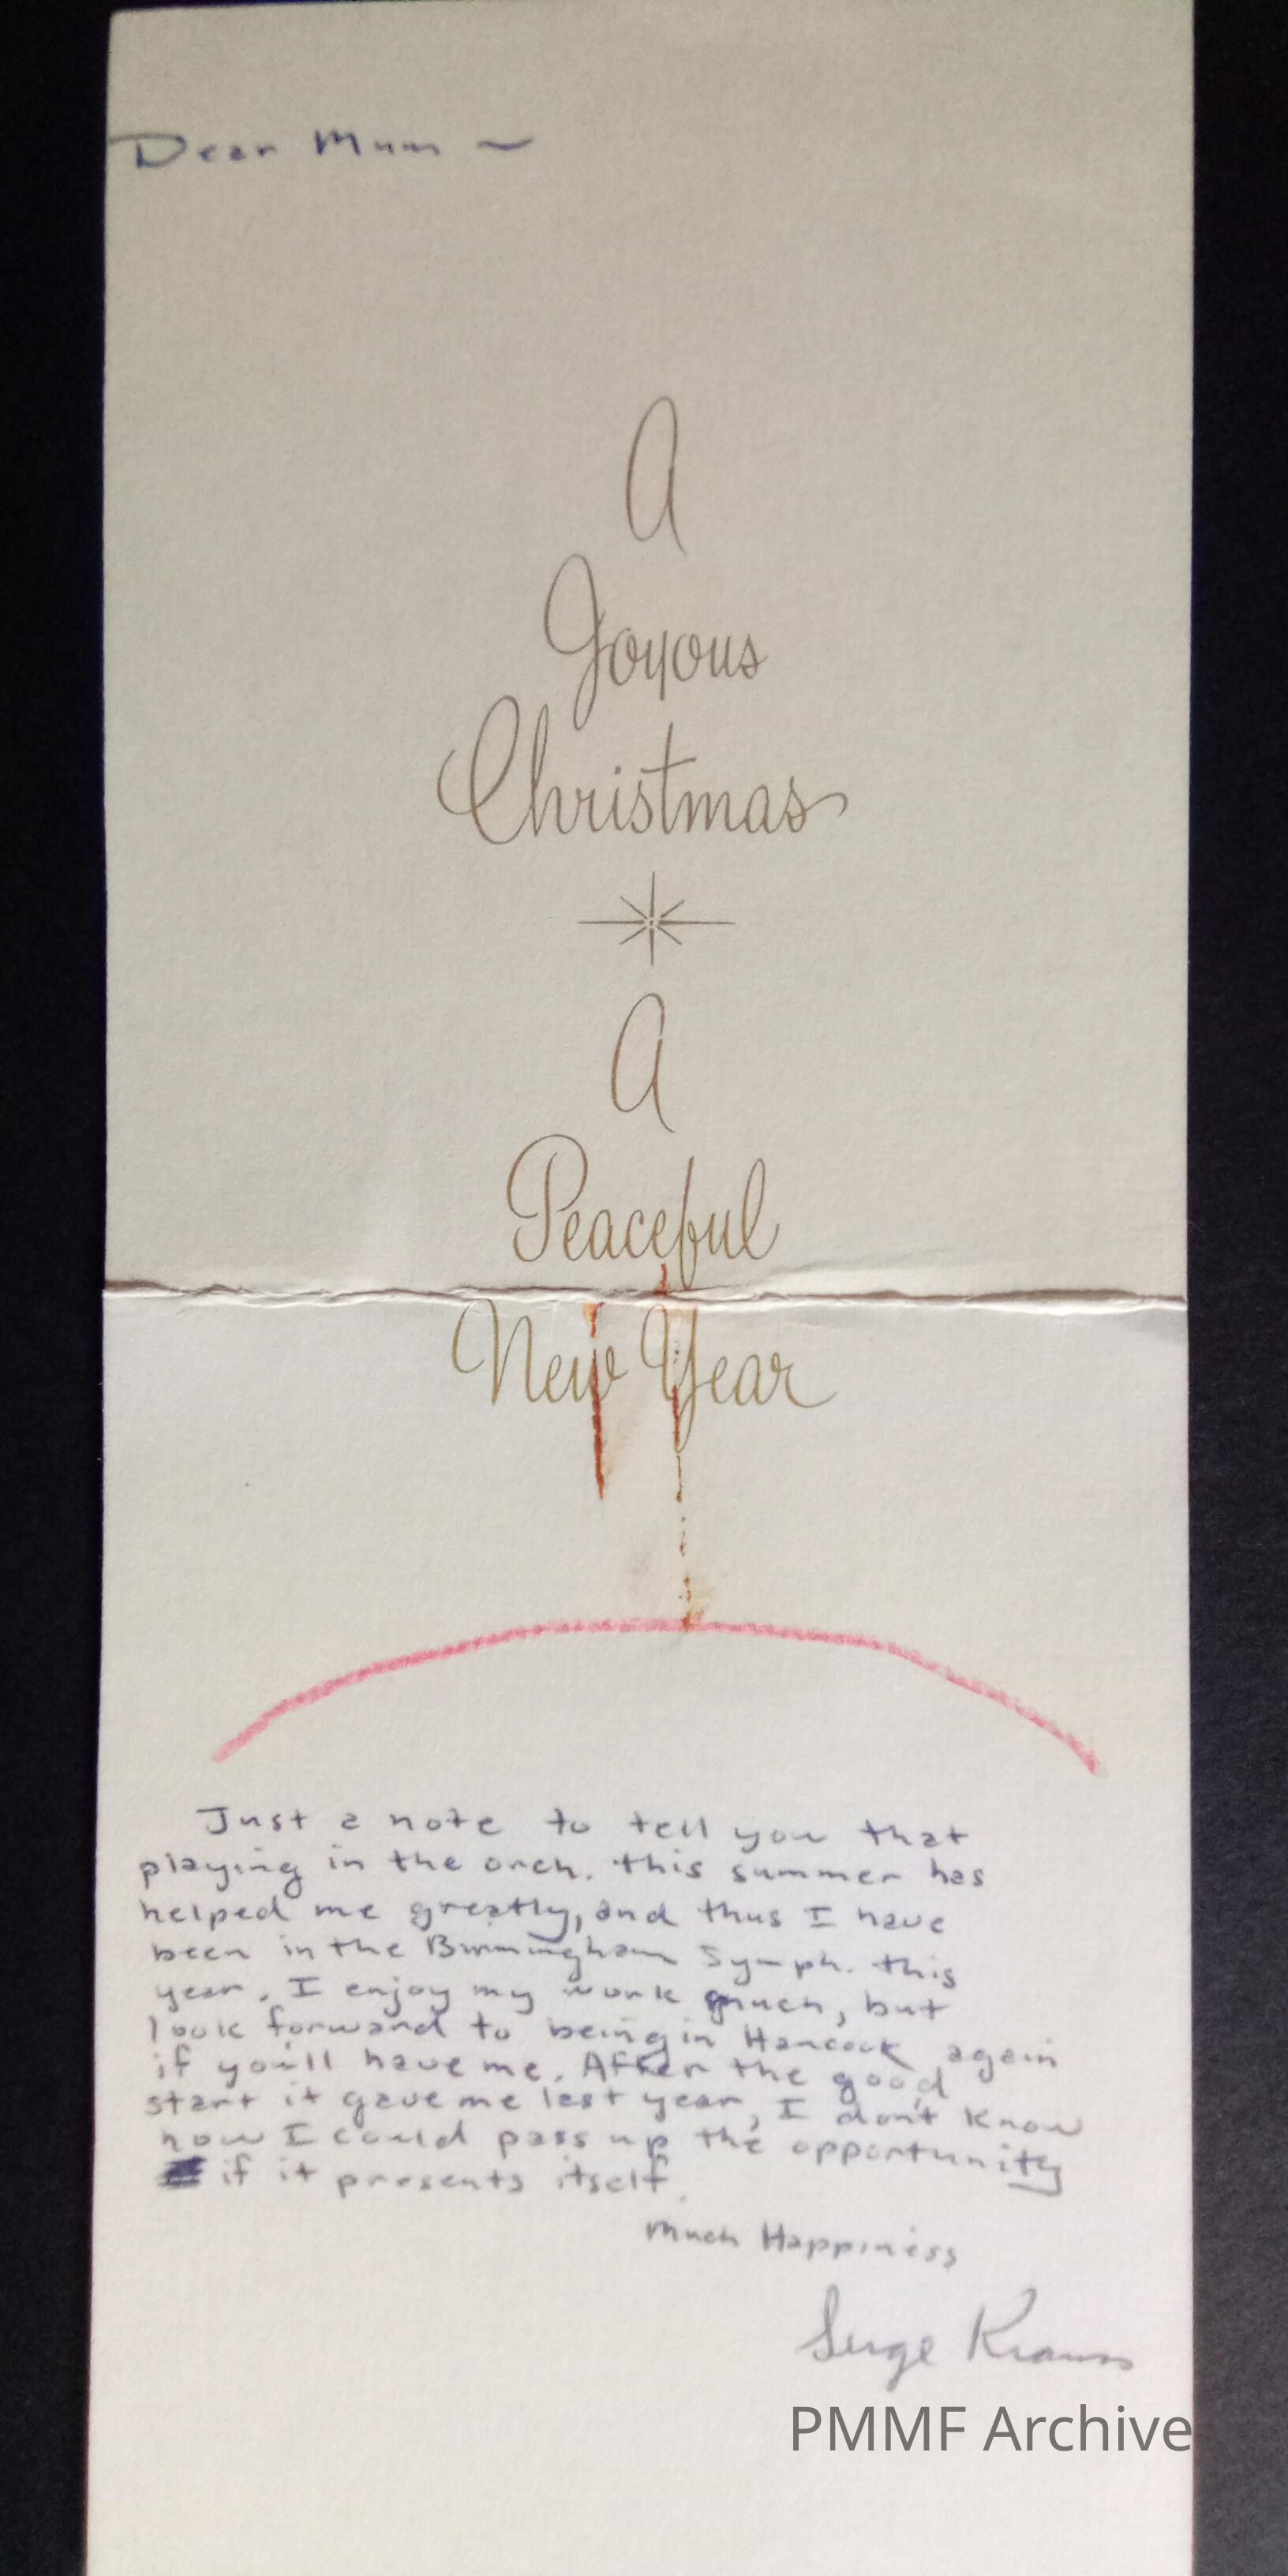 Dear Mum ~
A
Joyous
Christmas
A
Peaceful
New Year
Just a note to tell you that
playing in the orch. this summer has
helped me greatly, and thus I have
been in the Birmingham Symph. this
year. I enjoy my work much, but
look forward to being in Hancock again
if you'll have me. After the good
start it gave me last year, I don't know
how I could pass up the opportunity
if it presents itself.
Much Happiness
Serge Krauss
PMMF Archive